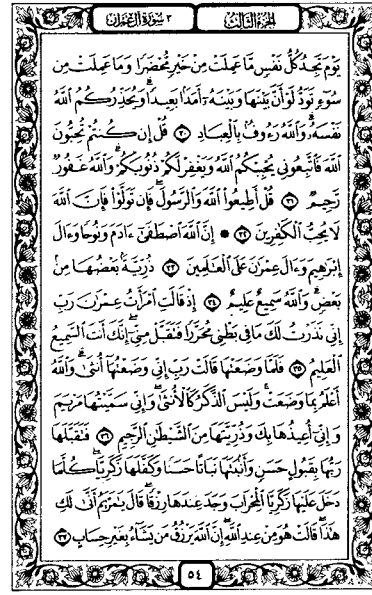 الجزء الثالث ٣ سورة آل عمران
يَوْمَ تَجِدُ كُلُّ نَفْسٍ مَّا عَمِلَتْ مِنْ خَيْرٍ مُّحْضَرًا وَمَا عَمِلَتْ مِن
سُوٓءٍ تَوَدُّ لَوْ أَنَّ بَيْنَهَا وَبَيْنَهُۥٓ أَمَدًۢا بَعِيدًا ۗ وَيُحَذِّرُكُمُ ٱللَّهُ
نَفْسَهُۥ ۗ وَٱللَّهُ رَءُوفٌۢ بِٱلْعِبَادِ ٣٠ قُلْ إِن كُنتُمْ تُحِبُّونَ
ٱللَّهَ فَٱتَّبِعُونِى يُحْبِبْكُمُ ٱللَّهُ وَيَغْفِرْ لَكُمْ ذُنُوبَكُمْ ۗ وَٱللَّهُ غَفُورٌ
رَّحِيمٌ ٣١ قُلْ أَطِيعُوا۟ ٱللَّهَ وَٱلرَّسُولَ ۖ فَإِن تَوَلَّوْا۟ فَإِنَّ ٱللَّهَ
لَا يُحِبُّ ٱلْكَٰفِرِينَ ٣٢ * إِنَّ ٱللَّهَ ٱصْطَفَىٰٓ ءَادَمَ وَنُوحًا وَءَالَ
إِبْرَٰهِيمَ وَءَالَ عِمْرَٰنَ عَلَى ٱلْعَٰلَمِينَ ٣٣ ذُرِّيَّةًۢ بَعْضُهَا مِنۢ
بَعْضٍ ۗ وَٱللَّهُ سَمِيعٌ عَلِيمٌ ٣٤ إِذْ قَالَتِ ٱمْرَأَتُ عِمْرَٰنَ رَبِّ
إِنِّى نَذَرْتُ لَكَ مَا فِى بَطْنِى مُحَرَّرًا فَتَقَبَّلْ مِنِّىٓ ۖ إِنَّكَ أَنتَ ٱلسَّمِيعُ
ٱلْعَلِيمُ ٣٥ فَلَمَّا وَضَعَتْهَا قَالَتْ رَبِّ إِنِّى وَضَعْتُهَآ أُنثَىٰ وَٱللَّهُ
أَعْلَمُ بِمَا وَضَعَتْ وَلَيْسَ ٱلذَّكَرُ كَٱلْأُنثَىٰ ۖ وَإِنِّى سَمَّيْتُهَا مَرْيَمَ
وَإِنِّىٓ أُعِيذُهَا بِكَ وَذُرِّيَّتَهَا مِنَ ٱلشَّيْطَٰنِ ٱلرَّجِيمِ ٣٦ فَتَقَبَّلَهَا
رَبُّهَا بِقَبُولٍ حَسَنٍ وَأَنۢبَتَهَا نَبَاتًا حَسَنًا وَكَفَّلَهَا زَكَرِيَّا ۖ كُلَّمَا
دَخَلَ عَلَيْهَا زَكَرِيَّا ٱلْمِحْرَابَ وَجَدَ عِندَهَا رِزْقًا ۖ قَالَ يَٰمَرْيَمُ أَنَّىٰ لَكِ
هَٰذَا ۖ قَالَتْ هُوَ مِنْ عِندِ ٱللَّهِ ۖ إِنَّ ٱللَّهَ يَرْزُقُ مَن يَشَآءُ بِغَيْرِ حِسَابٍ ٣٧
٥٤